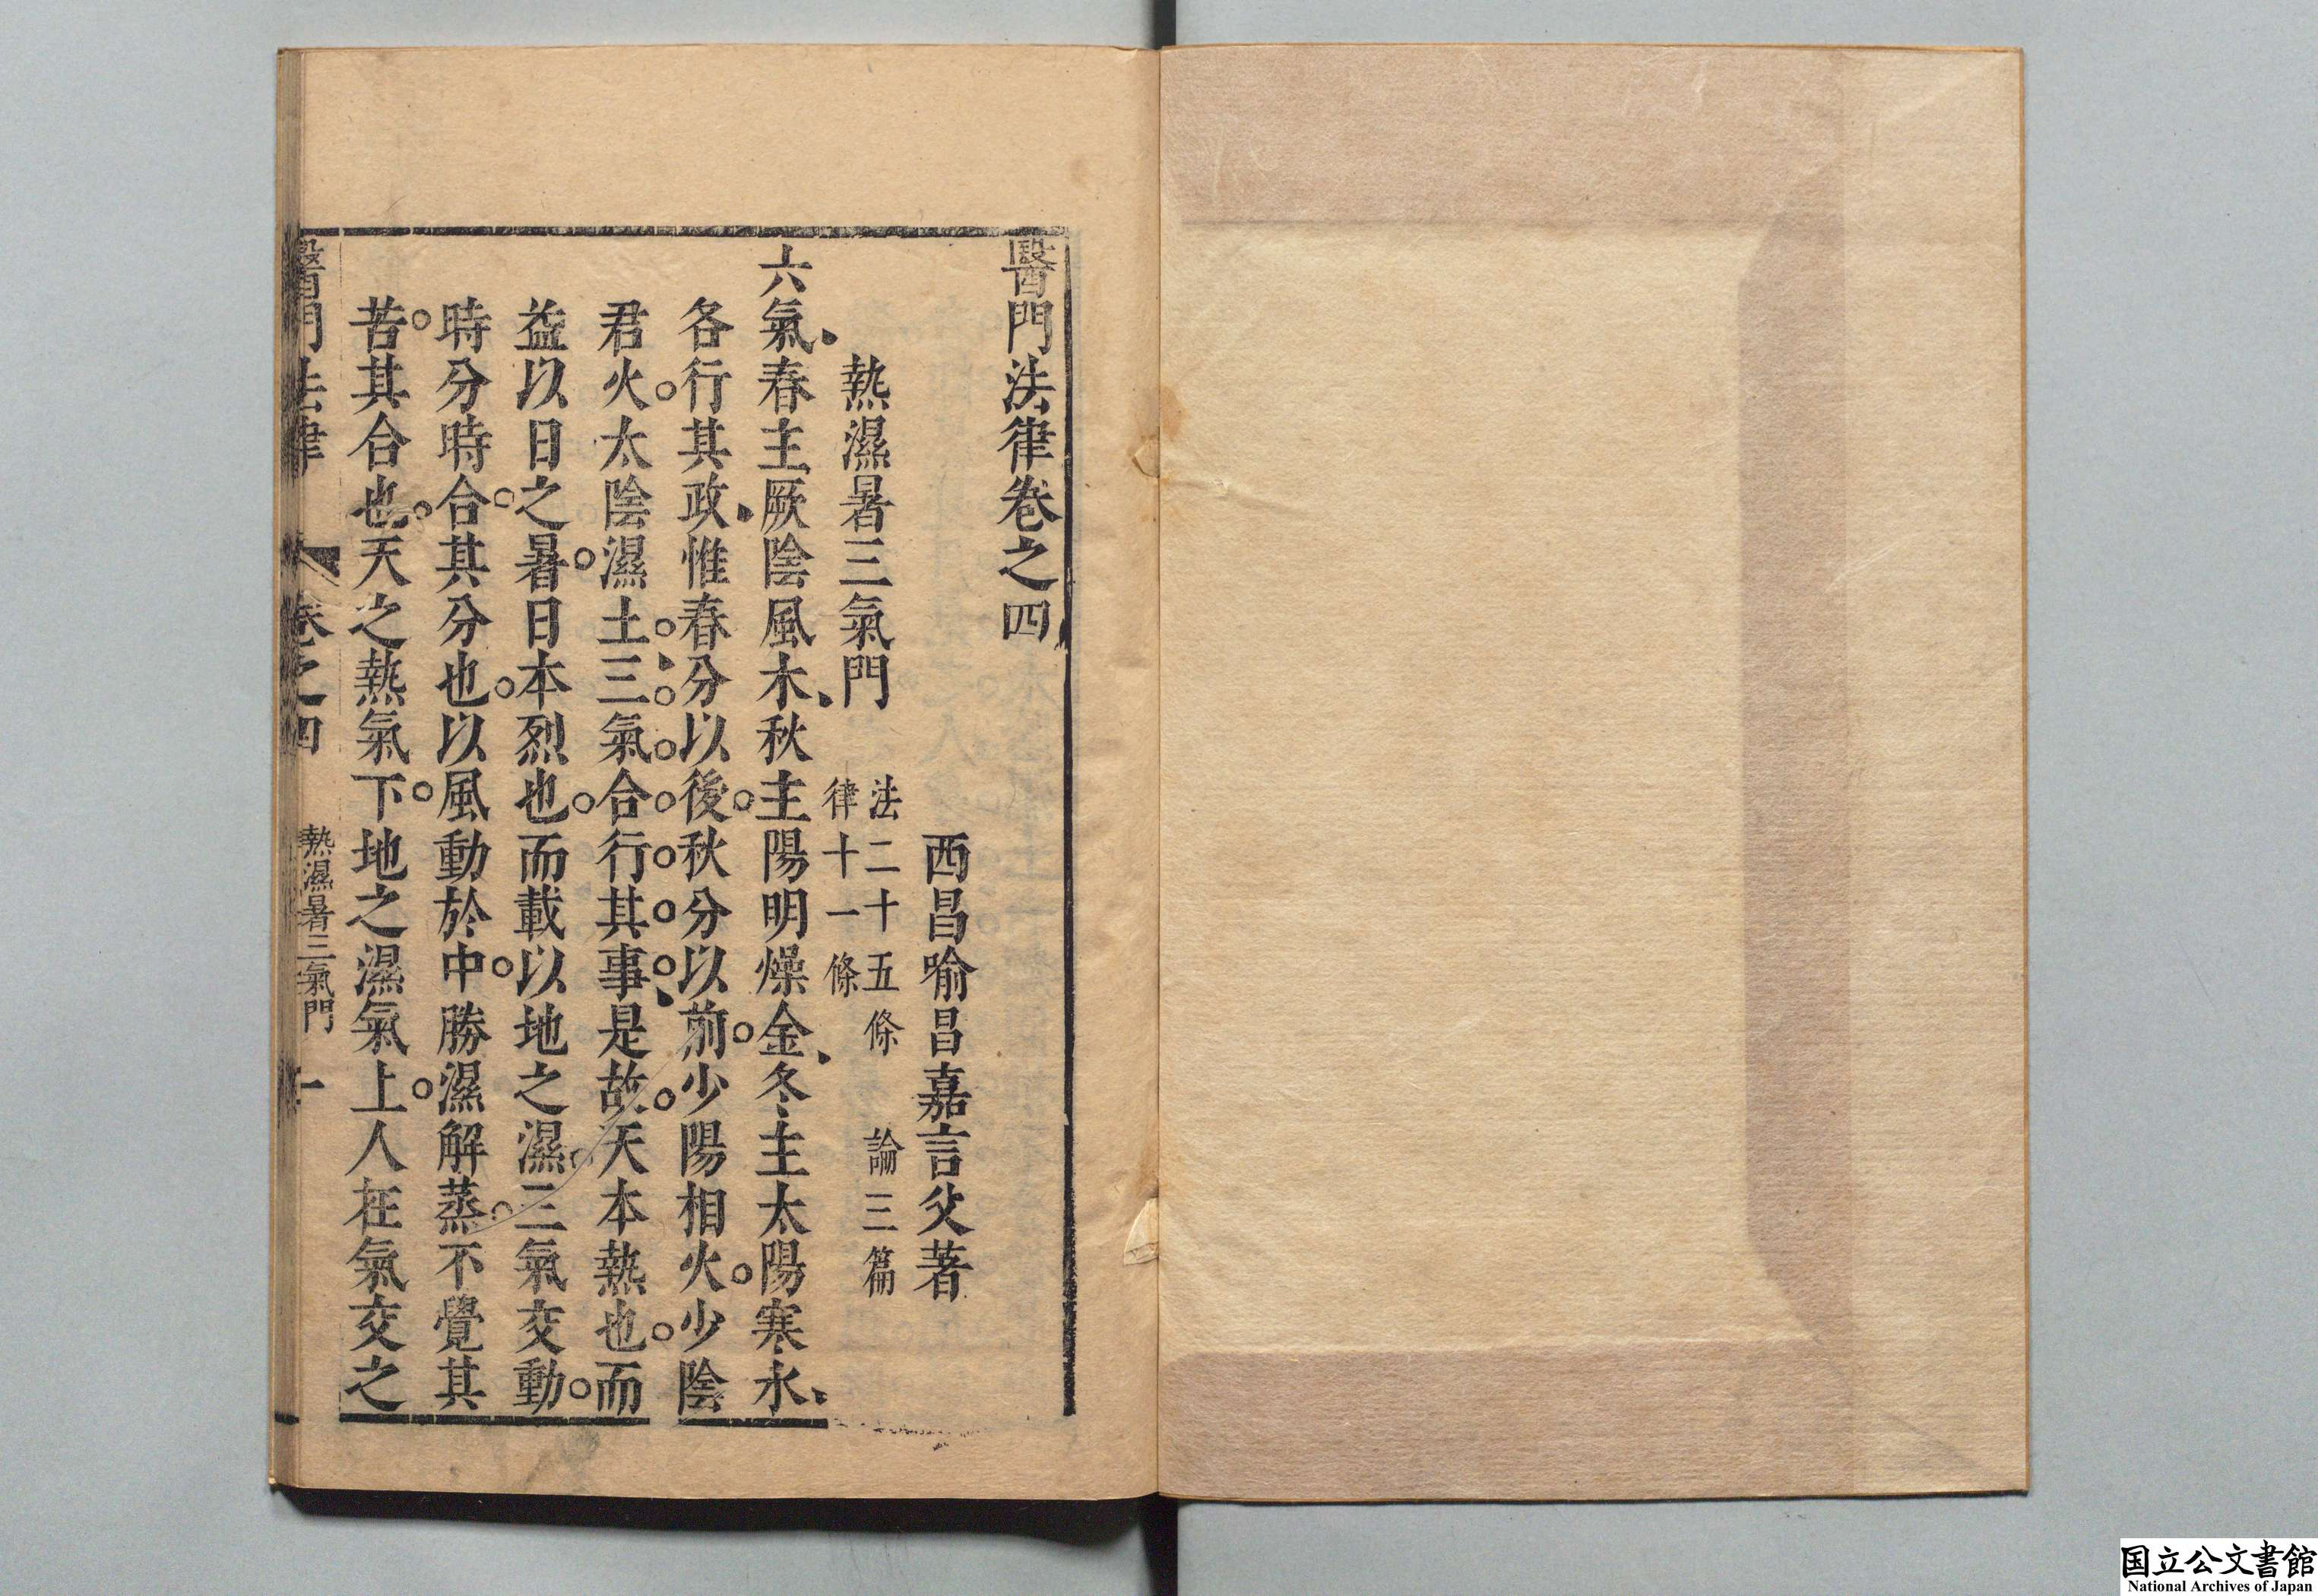 醫門法律卷之四
西昌喻昌嘉言父著
熱濕暑三氣門
法二十五條　論三篇
律十一條
六氣春主厥陰風木秋主陽明燥金冬主太陽寒水
各行其政惟春分以後秋分以前少陽相火少陰
君火太陰濕土三氣合行其事是故天本熱也而
益以日之暑日本烈也而載以地之濕三氣交動
時分時合其分也以風動於中勝濕解蒸不覺其
苦其合也天之熱氣下地之濕氣上人在氣交之
醫門法律　卷之四　熱濕暑三氣門　一
国立公文書館
National Archives of Japan